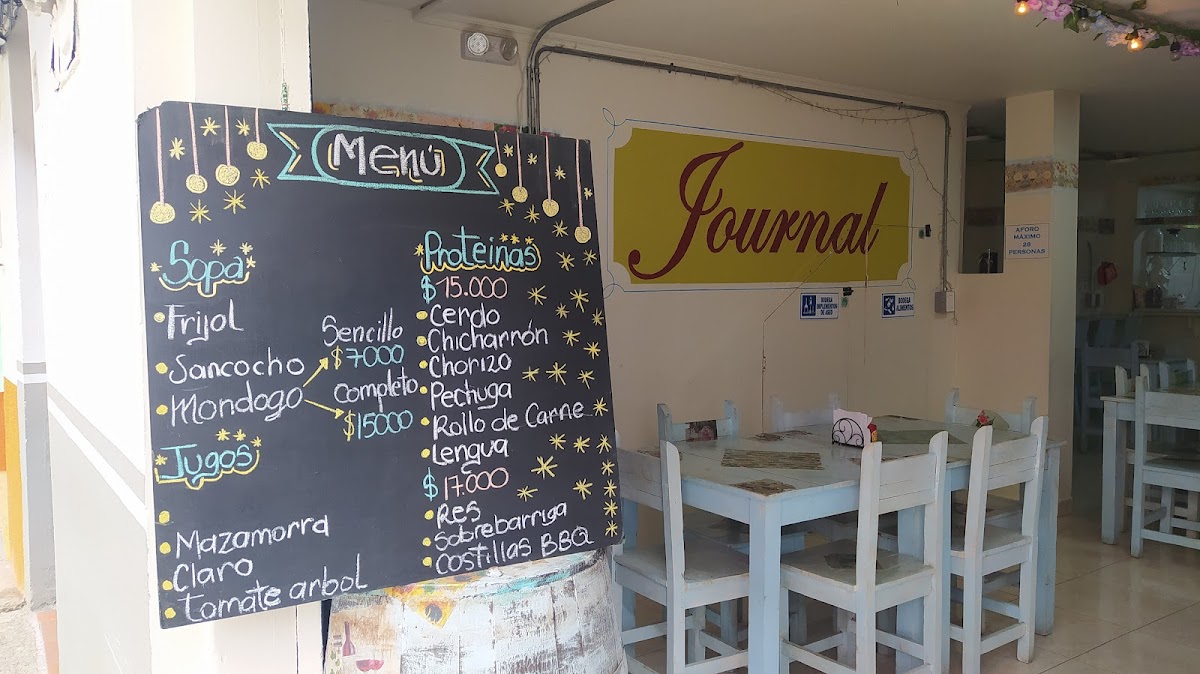 Menú
Sopa
Frijol
Sancocho
Mondogo
Sencillo
$7000
Completo
$15000
Jugos
Mazamorra
Claro
Tomate arbol
Proteinas
$15.000
Cerdo
Chicharrón
Chorizo
Pechuga
Rollo de Carne
Lengua
$17.000
Res
Sobrebarriga
Costillas BBQ
Journal
AFORO
MÁXIMO
28
PERSONAS
BODEGA
IMPLEMENTOS
DE ASEO
BODEGA
ALIMENTOS